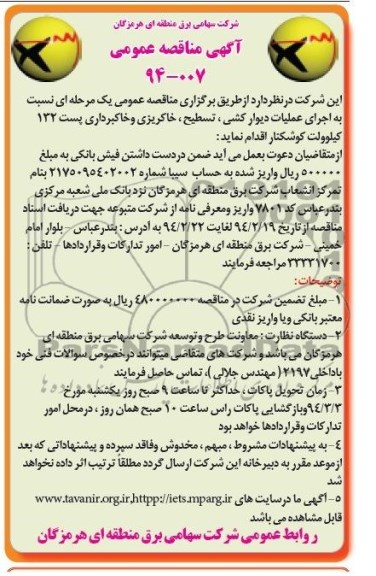 شرکت سهامی برق منطقه ای هرمزگان
آگهی مناقصه عمومی
۹۴-۰۰۷
این شرکت درنظردارد ازطریق برگزاری مناقصه عمومی یک مرحله ای نسبت
به اجرای عملیات دیوار کشی ، تسطیح ، خاکریزی وخاکبرداری پست ۱۳۲
کیلوولت کوشکنار اقدام نماید :
ازمتقاضیان دعوت بعمل می آید ضمن دردست داشتن فیش بانکی به مبلغ
۵۰۰۰۰۰ ریال واریز شده به حساب سیبا شماره ۲۱۷۵۰۹۵۴۰۲۰۰۲ بنام
تمرکز انشعاب شرکت برق منطقه ای هرمزگان نزد بانک ملی شعبه مرکزی
بندرعباس کد ۷۸۰۱ واریز ومعرفی نامه از شرکت متبوعه جهت دریافت اسناد
مناقصه از تاریخ ۹۴/۲/۱۹ لغایت ۹۴/۲/۲۲ به آدرس : بندرعباس - بلوار امام
خمینی - شرکت برق منطقه ای هرمزگان - امور تدارکات وقراردادها - تلفن :
۳۳۳۳۱۷۰۰ مراجعه فرمایند
توضیحات:
۱- مبلغ تضمین شرکت در مناقصه ۴۸۰۰۰۰۰۰۰ ریال به صورت ضمانت نامه
معتبر بانکی ویا واریز نقدی
۲- دستگاه نظارت : معاونت طرح وتوسعه شرکت سهامی برق منطقه ای
هرمزگان می باشد و شرکت های متقاضی میتوانند درخصوص سوالات فنی خود
باداخلی ۲۱۹۷( مهندس جلالی )، تماس حاصل فرمایند
۳- زمان تحویل پاکات ، حداکثر تا ساعت ۹ صبح روز یکشنبه مورخ
۹۴/۳/۳ وبازگشایی پاکات راس ساعت ۱۰ صبح همان روز ، درمحل امور
تدارکات وقراردادها خواهد بود
۴- به پیشنهادات مشروط ، مبهم ، مخدوش وفاقد سپرده و پیشنهاداتی که بعد
ازموعد مقرر به دبیرخانه این شرکت ارسال گردد مطلقا ترتیب اثر داده نخواهد
شد
۵- آگهی ما درسایت های www.tavanir.org.ir,httpp://iets.mparg.ir
قابل مشاهده می باشد
روابط عمومی شرکت سهامی برق منطقه ای هرمزگان